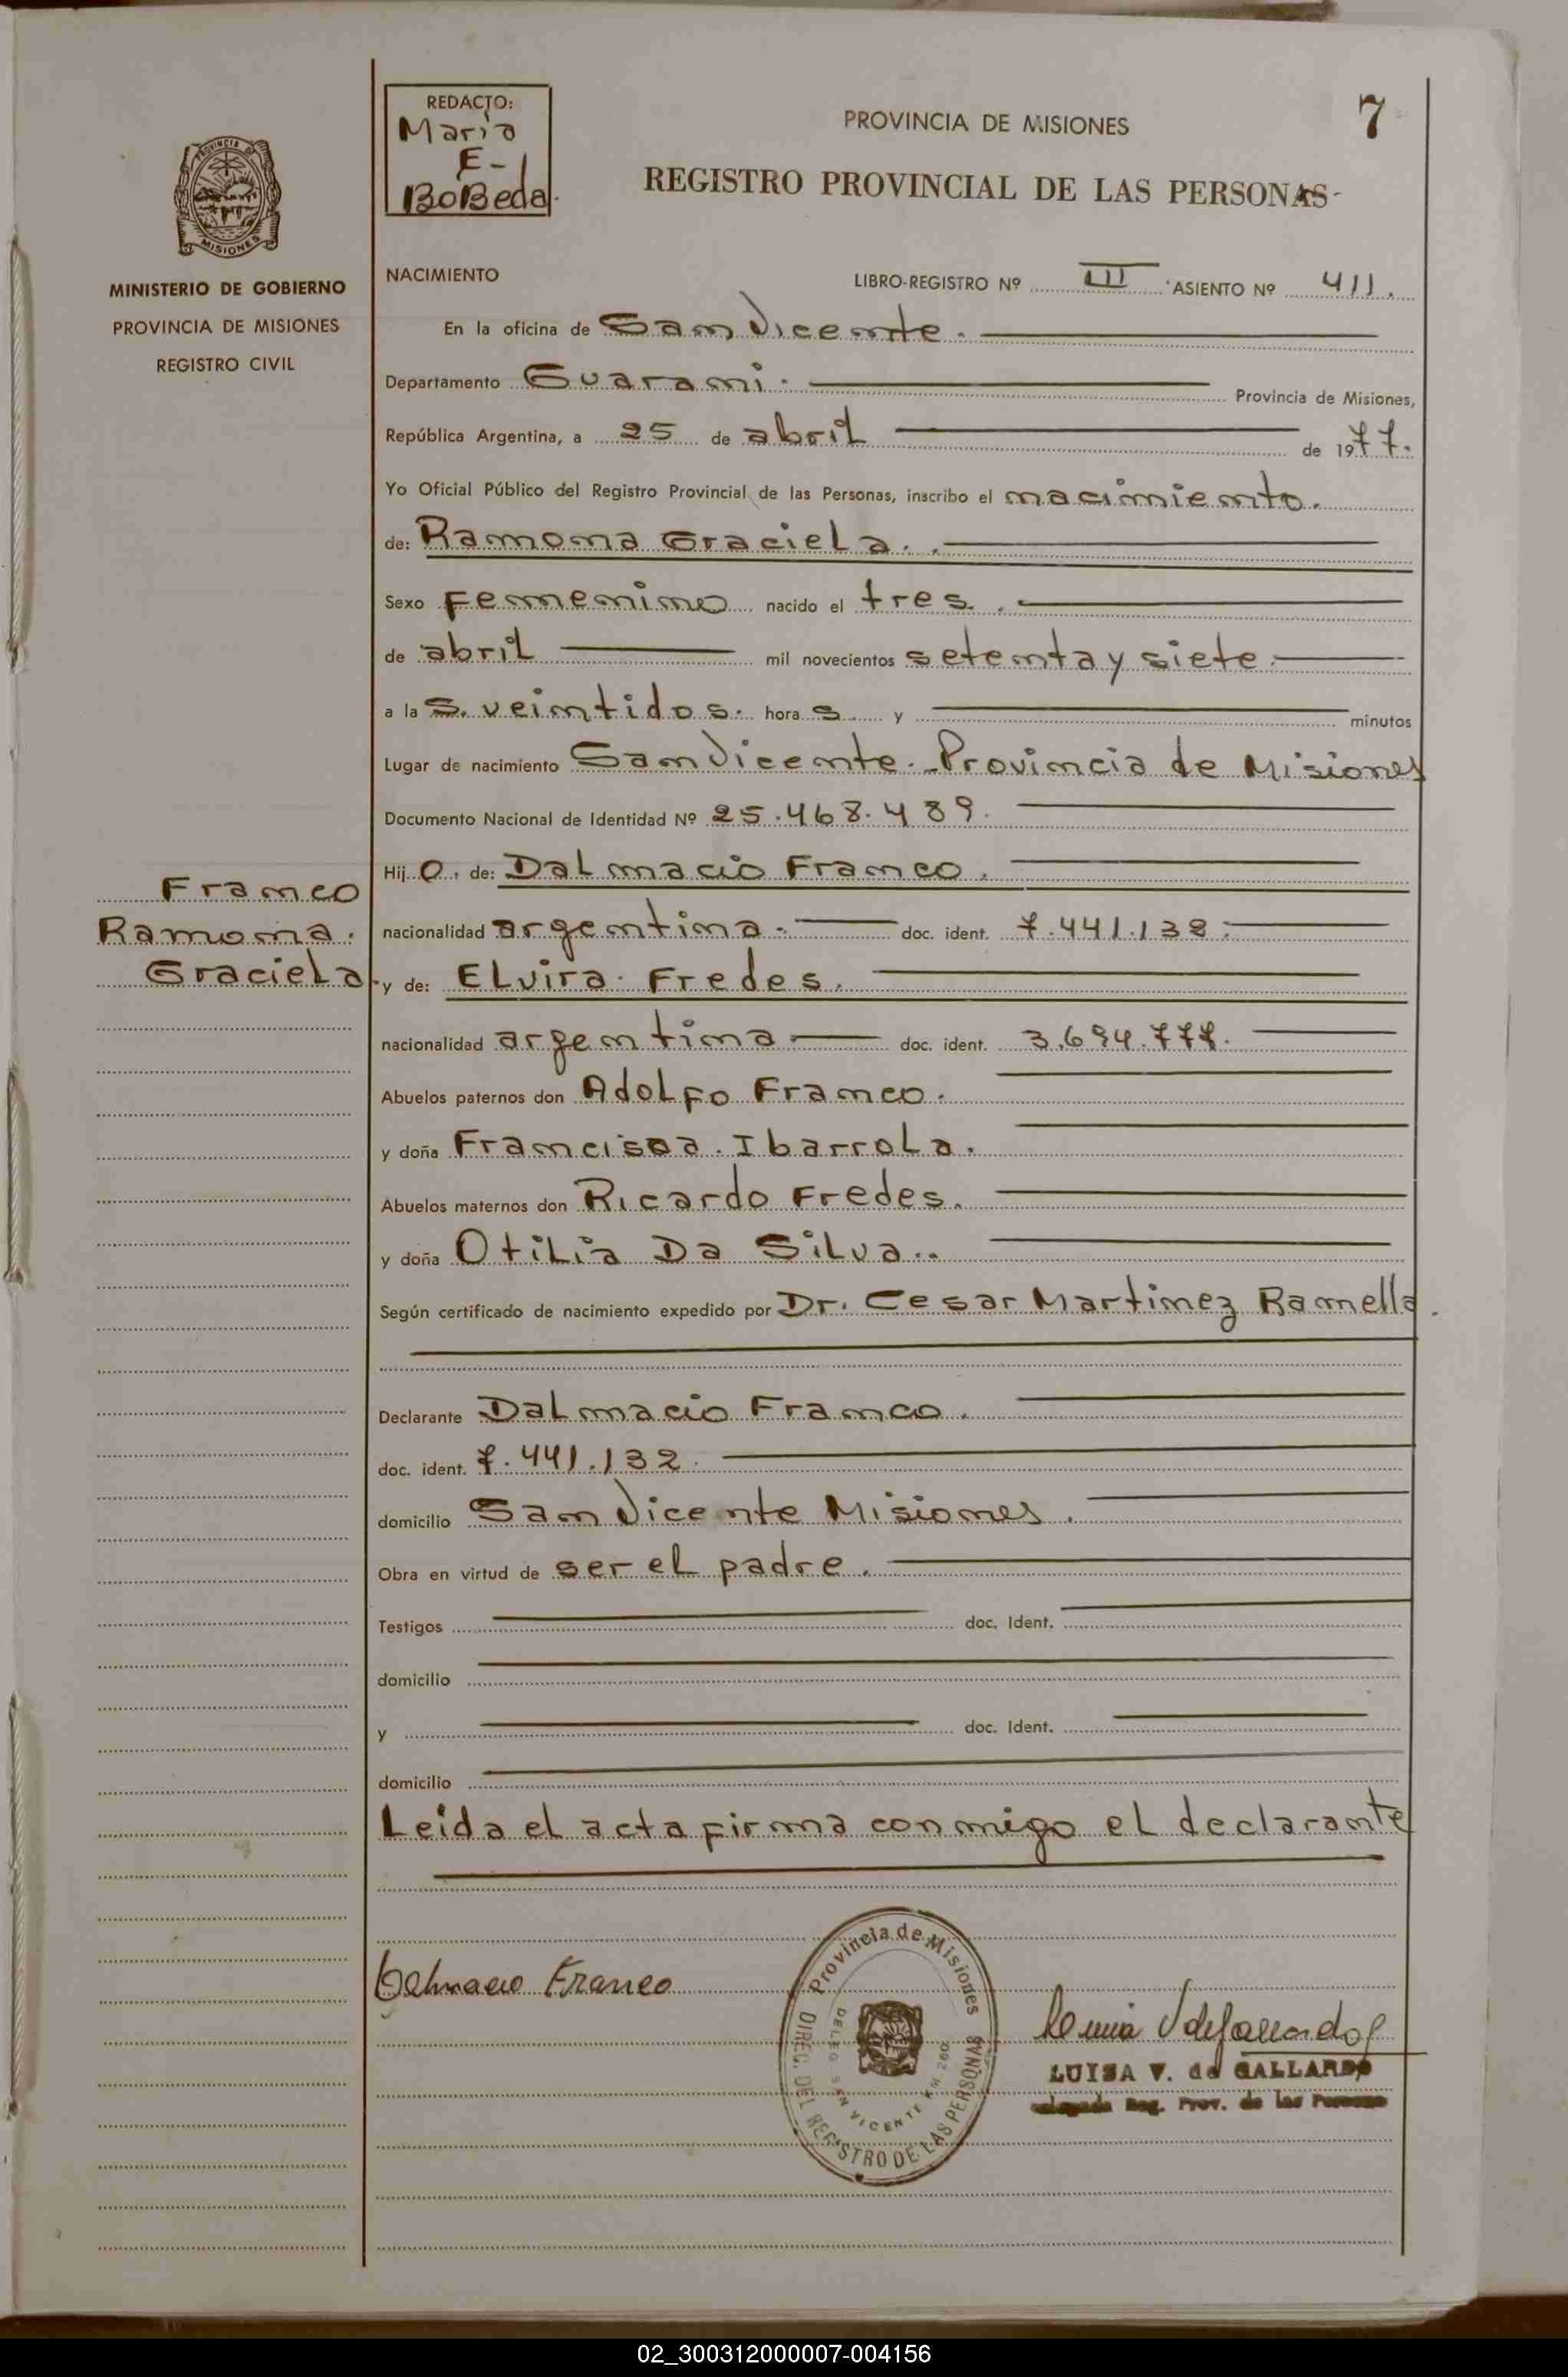 7
REDACTO:
Maria
E-
BoBeda.
PROVINCIA DE MISIONES
REGISTRO PROVINCIAL DE LAS PERSONAS
MINISTERIO DE GOBIERNO
PROVINCIA DE MISIONES
REGISTRO CIVIL
NACIMIENTO LIBRO-REGISTRO Nº III ASIENTO Nº 411.
En la oficina de San Vicente.
Departamento Guarani. Provincia de Misiones,
República Argentina, a 25 de abril de 1977.
Yo Oficial Público del Registro Provincial de las Personas, inscribo el nacimiento.
de: Ramona Graciela.
Sexo Femenino nacido el tres.
de abril mil novecientos setenta y siete.
a la s. veintidos. hora s y minutos
Lugar de nacimiento San Vicente. Provincia de Misiones
Documento Nacional de Identidad Nº 25.468.489.
Hij o. de: Dalmacio Franco.
nacionalidad argentina. doc. ident. 7.441.132.
y de: Elvira Fredes.
nacionalidad argentina doc. ident. 3.694.777.
Abuelos paternos don Adolfo Franco.
y doña Francisca Ibarrola.
Abuelos maternos don Ricardo Fredes.
y doña Otilia Da Silva..
Según certificado de nacimiento expedido por Dr. Cesar Martinez Ramella.
Declarante Dalmacio Franco.
doc. ident. 7.441.132.
domicilio San Vicente Misiones.
Obra en virtud de ser el padre.
Testigos doc. Ident.
domicilio
y doc. Ident.
domicilio
Leida el acta firma conmigo el declarante
Franco
Ramona.
Graciela
Dalmacio Franco
Provincia de Misiones
DIREC. DEL REGISTRO DE LAS PERSONAS
VICENTE KM.
LUISA V. de GALLARDO
Delegada Reg. Prov. de las Personas
02_300312000007-004156